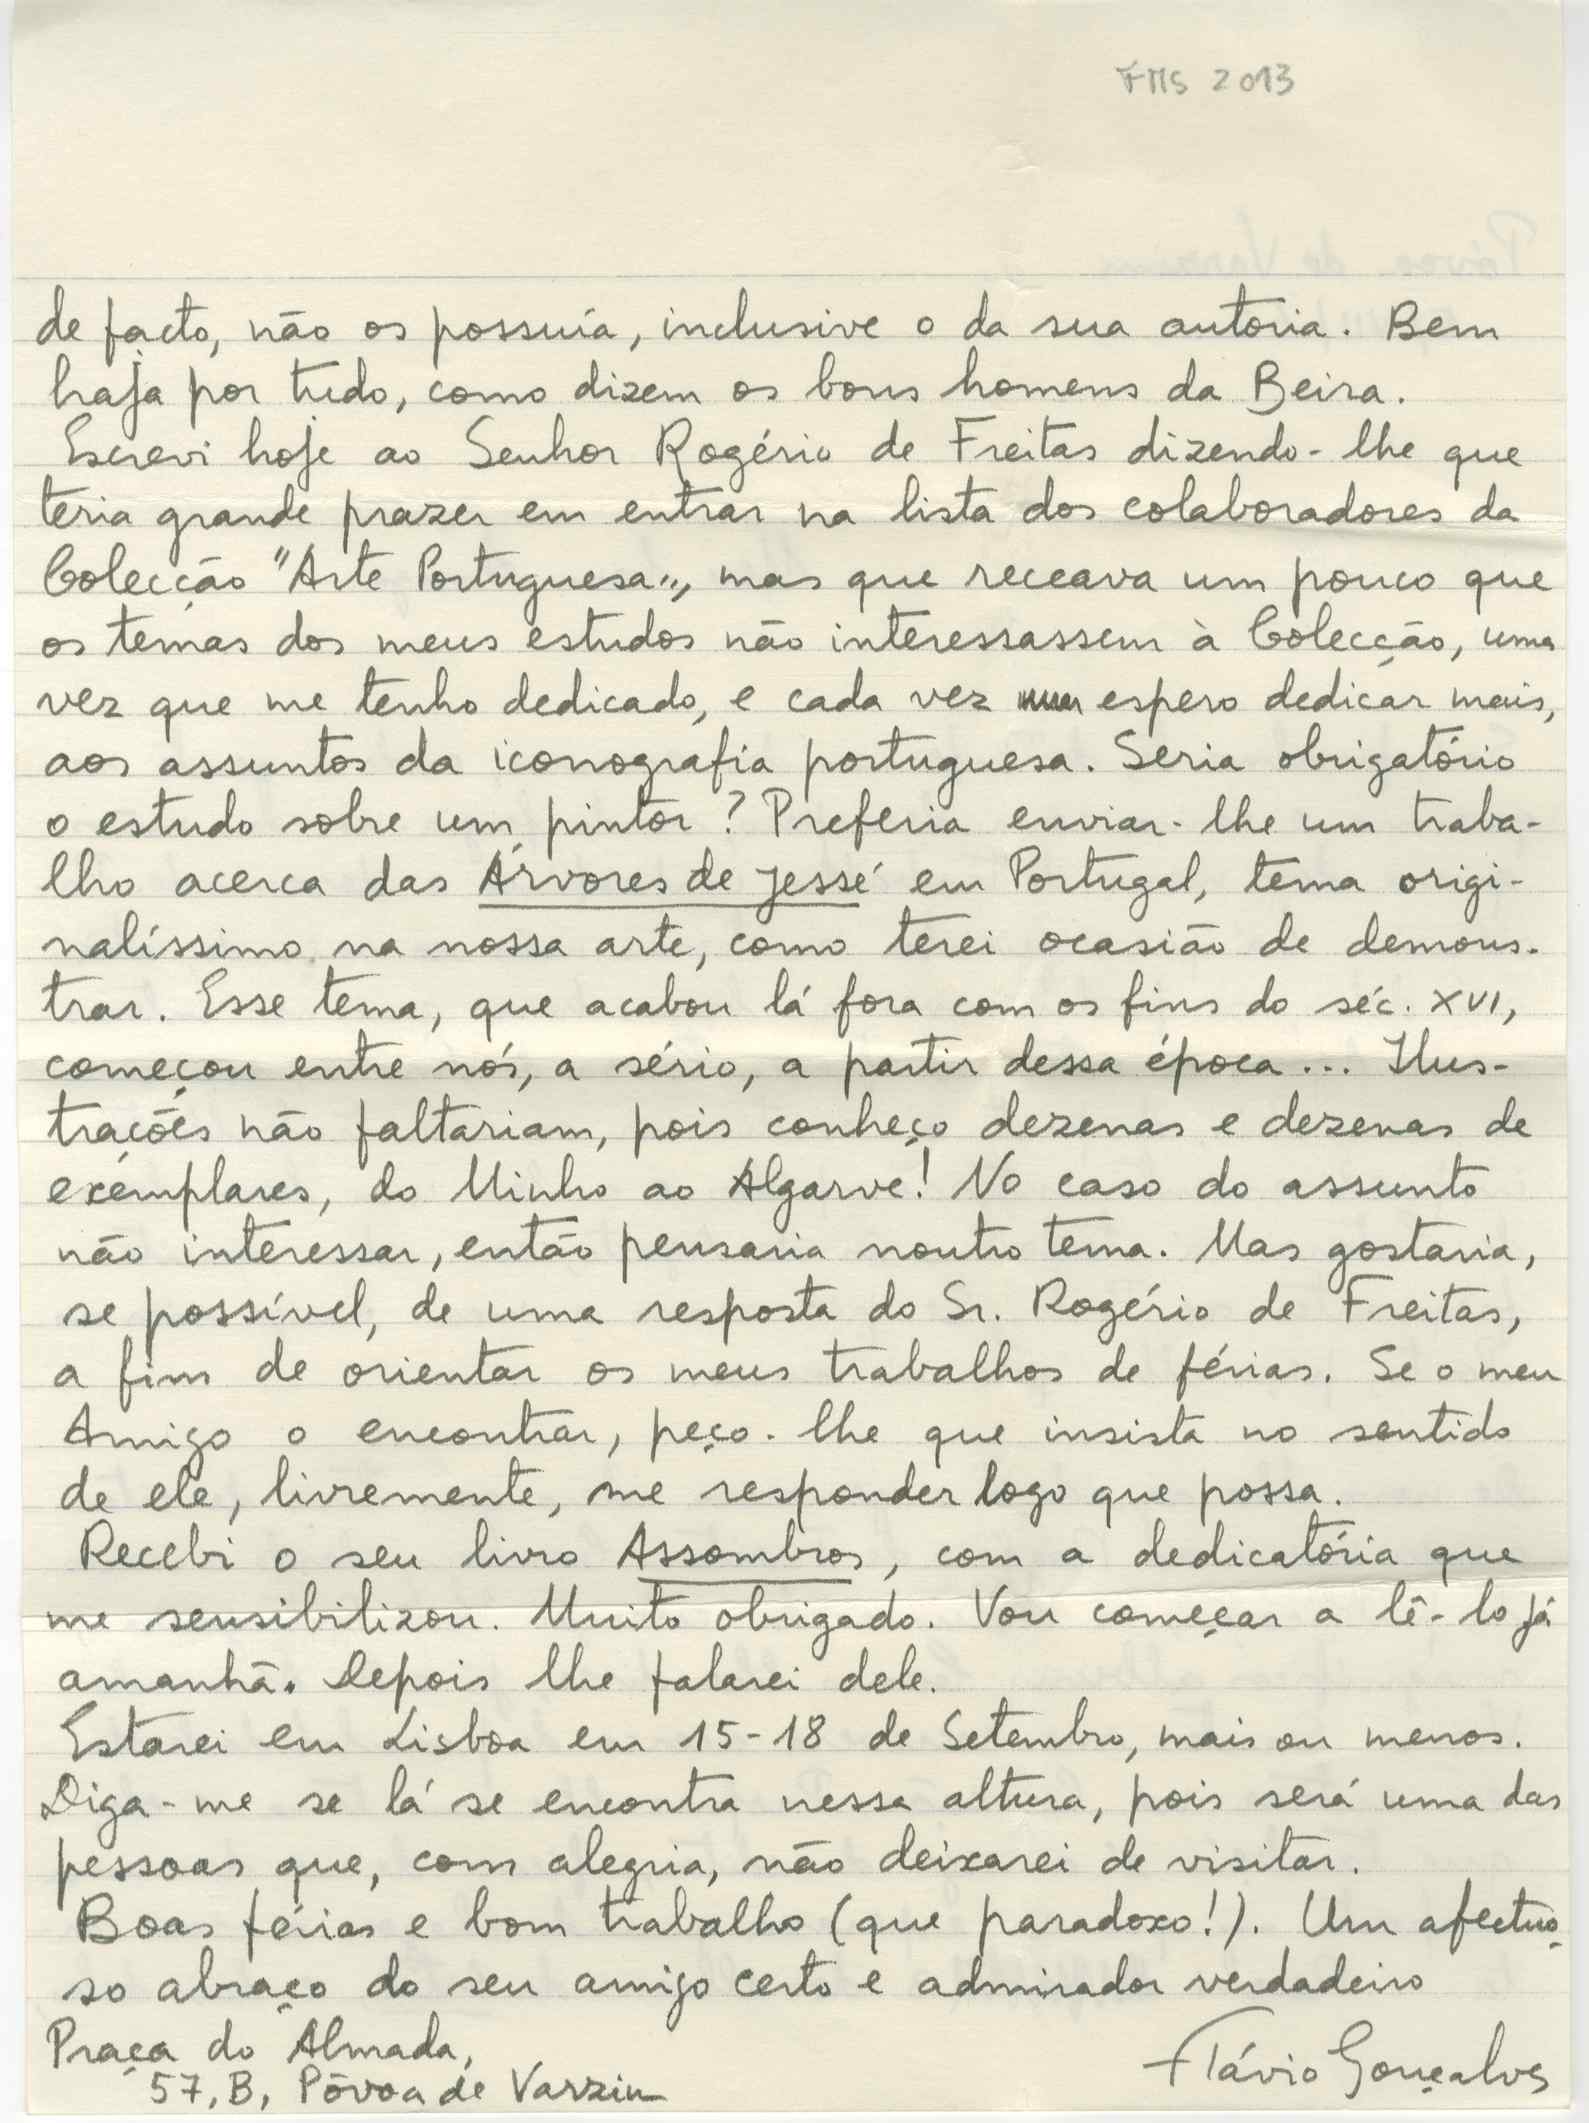 FMS 2013
de facto, não os possuía, inclusive o da sua autoria. Bem
haja por tudo, como dizem os bons homens da Beira.
Escrevi hoje ao Senhor Rogério de Freitas dizendo-lhe que
teria grande prazer em entrar na lista dos colaboradores da
Colecção "Arte Portuguesa", mas que receava um pouco que
os temas dos meus estudos não interessassem à Colecção, uma
vez que me tenho dedicado, e cada vez espero dedicar mais,
aos assuntos da iconografia portuguesa. Seria obrigatório
o estudo sobre um pintor? Preferia enviar-lhe um traba-
lho acerca das Árvores de Jessé em Portugal, tema origi-
nalíssimo na nossa arte, como terei ocasião de demons-
trar. Esse tema, que acabou lá fora com os fins do séc. XVI,
começou entre nós, a sério, a partir dessa época... Ilus-
trações não faltariam, pois conheço dezenas e dezenas de
exemplares, do Minho ao Algarve! No caso do assunto
não interessar, então pensaria noutro tema. Mas gostaria,
se possível, de uma resposta do Sr. Rogério de Freitas,
a fim de orientar os meus trabalhos de férias. Se o meu
Amigo o encontrar, peço-lhe que insista no sentido
de ele, livremente, me responder logo que possa.
Recebi o seu livro Assombros, com a dedicatória que
me sensibilizou. Muito obrigado. Vou começar a lê-lo já
amanhã. Depois lhe falarei dele.
Estarei em Lisboa em 15-18 de Setembro, mais ou menos.
Diga-me se lá se encontra nessa altura, pois será uma das
pessoas que, com alegria, não deixarei de visitar.
Boas férias e bom trabalho (que paradoxo!). Um afectuo-
so abraço do seu amigo certo e admirador verdadeiro
Praça do Almada,
Flávio Gonçalves
57, B, Póvoa de Varzim